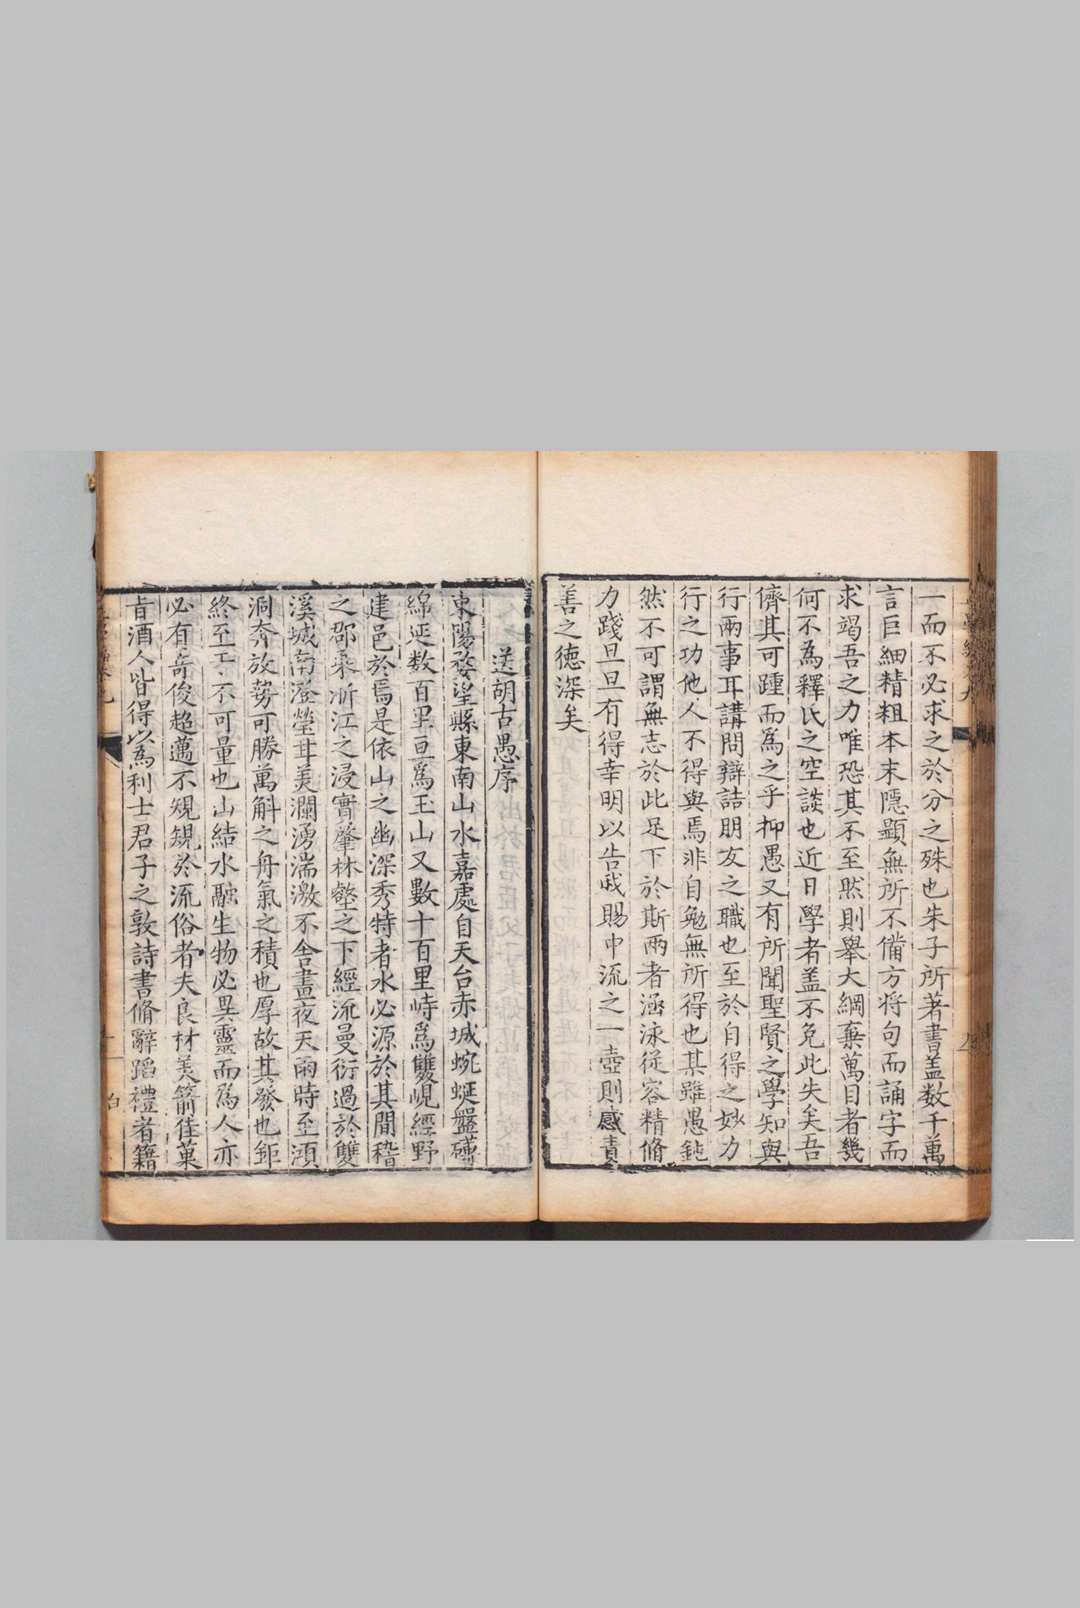 一而不必求之於分之殊也朱子所著書盖数千萬
言巨細精粗本末隱顯無所不備方将句而誦字而
求竭吾之力唯恐其不至然則舉大綱棄萬目者幾
何不為釋氏之空談也近日學者盖不免此失矣吾
儕其可踵而爲之乎抑愚又有所聞聖賢之學知與
行兩事耳講問辯詰朋友之職也至於自得之妙力
行之功他人不得與焉非自勉無所得也某雖愚鈍
然不可謂無志於此足下於斯兩者涵泳從容精脩
力踐旦旦有得幸明以告我賜中流之一壺則感責
善之德深矣
送胡古愚序
東陽婺望縣東南山水嘉處自天台赤城蜿蜒盤礴
綿延数百里亘爲玉山又數十百里峙爲雙峴經野
建邑於焉是依山之幽深秀特者水必源於其間稽
之郡乘浙江之浸實肇林壑之下經流曼衍過於雙
溪城南澄瑩甘美瀾湧湍激不舍晝夜天雨時至澒
洞奔放勢可勝萬斛之舟氣之積也厚故其發也鉅
終至不可量也山結水融生物必異靈而爲人亦
必有奇俊超邁不規規於流俗者夫良材美箭佳菓
旨酒人皆得以爲利士君子之敦詩書脩辭蹈禮者籍